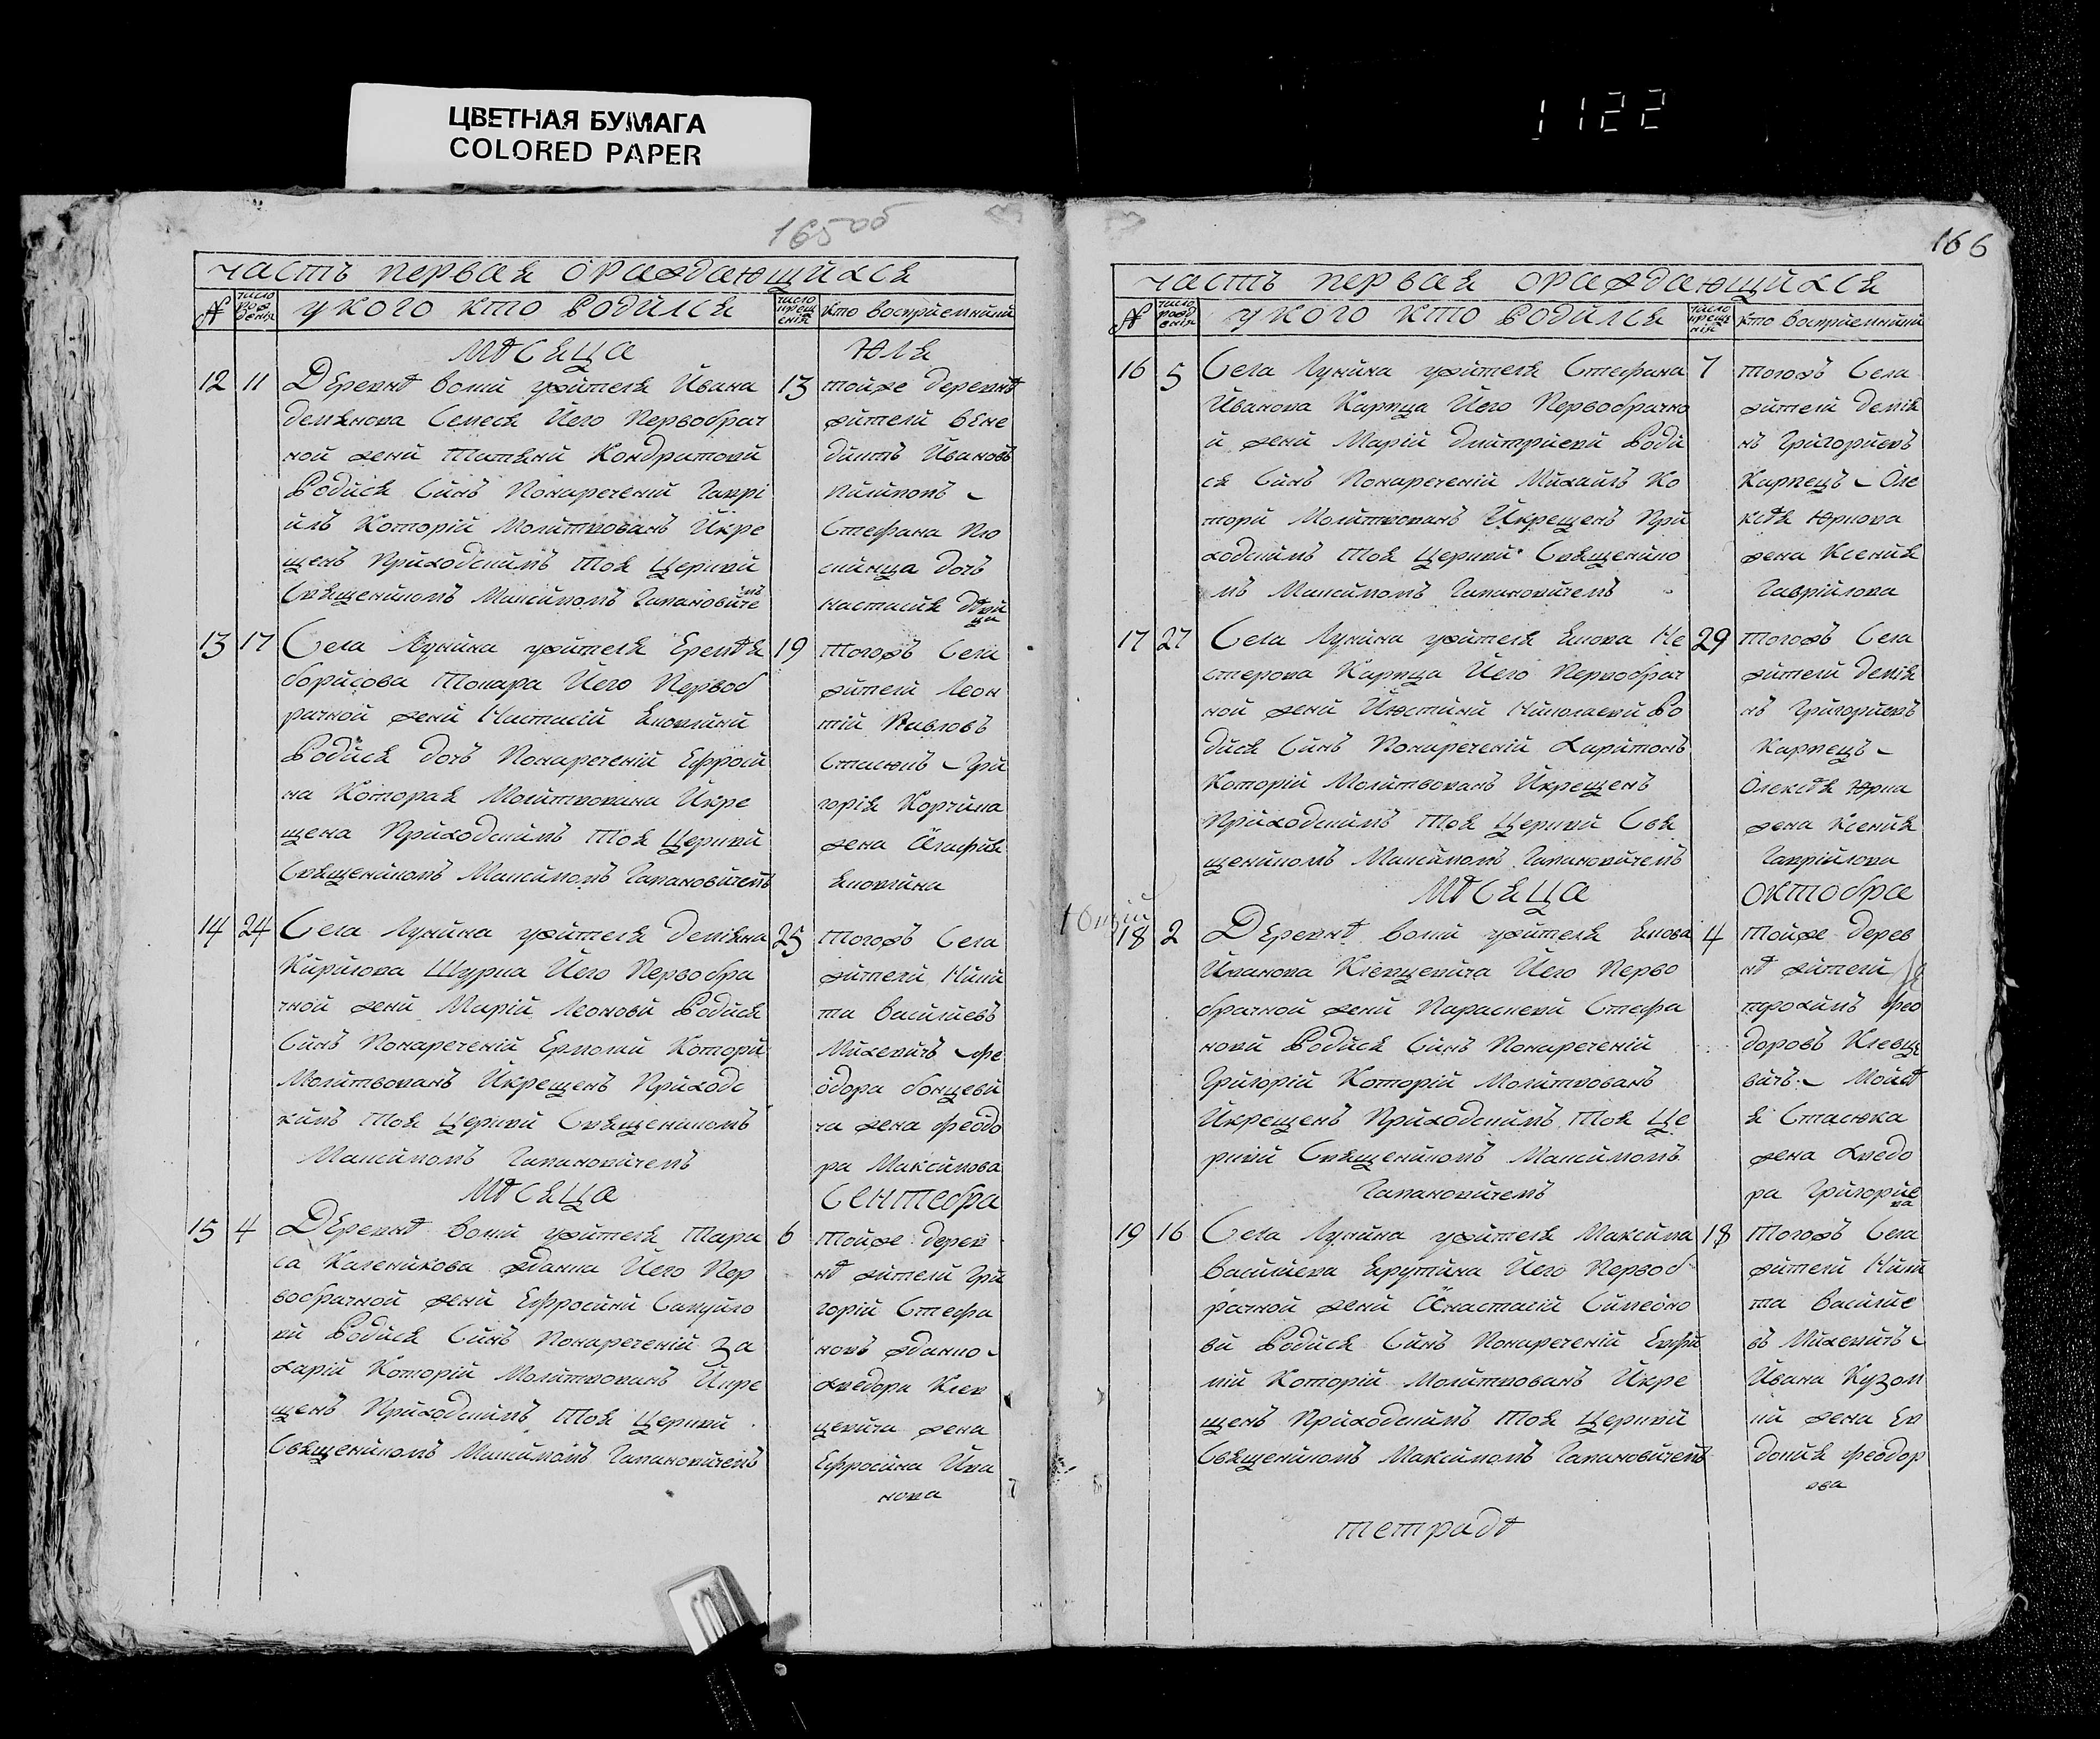 ЦВЕТНАЯ БУМАГА
COLORED PAPER
1122
165об
часть первая ѡраждающихся
№ число рождения у кого кто родился число крещения кто восприемники
мѣсяца Июля
12 11 Деревнѣ волки жителя Ивана 13
демянова Семеся Його Первобрач
ной жени Татяни Кондратовй
Родися Синъ Понареченій Гаврі
илъ Которій Молитвованъ Икре
щенъ Приходскимъ Тоя Церкви
Священикомъ Максимомъ Гапановичемъ
тойже деревнѣ
жители вене
диктъ Ивановъ
Пилипом
Стефана
дочъ
настасия дѣвица
13 17 Села Лунина жителя Еремѣя 19
борисова Токара Його Первоб
рачной жени Настасій Яковлини
Родися дочъ Понареченій Ефроси
на Которая Молитвована Икре
щена Приходскимъ Тоя Церкви
Священикомъ Максимомъ Гапановичемъ
тогожъ Села
жители Леон
тій Павловъ
Стасюкъ Гри
горія Корчика
жена Агафия
Яковлина
14 24 Села Лунина жителя Демяна 25
Кирилова Щурка Його Первобра
чной жени Марій Леоновй Родися
Синъ Понареченій Ермолай Которй
Молитвованъ Икрещенъ Приходс
кимъ Тоя Церкви Священикомъ
Максимомъ Гапановичемъ
тогожъ Села
жители Ники
та Василиевъ
Михевичъ Фе
одора бонцеви
ча жена Феодо
ра Максимова
мѣсяца Сентебра
15 4 Деревнѣ волки жителя Тара 6
са Каленикова жданка Його Пер
вобрачной жени Ефросини Самуйло
вй Родися Синъ Понареченій За
харій Которій Молитвованъ Икре
щенъ Приходскимъ Тоя Церкви
Священикомъ Максимомъ Гапановичемъ
тойже дерев
нѣ жители Гри
горій Стефа
новъ жданко
хведора Клев
цевича жена
Ефросина Ива
нова
166
часть первая ѡраждающихся
№ число рождения у кого кто родился число крещения кто восприемники
16 5 Села Лунина жителя Стефана 7
Иванова Карпца Його Первобрачно
й жени Марій Дмитриевй Роди
ся Синъ Понареченій Михаилъ Ко
торй Молитвованъ Икрещенъ При
ходскимъ Тоя Церкви Священико
мъ Максимомъ Гапановичемъ
тогожъ Села
жители Демія
нъ Григориевъ
Карпецъ Оле
ксѣя Юркова
жена Ксения
Гаврилова
17 27 Села Лунина жителя Якова Не 29
стерова Карпца Його Первобрач
ной жени Июстини Николаевй Ро
дися Синъ Понареченій Харитонъ
Которій Молитвованъ Икрещенъ
Приходскимъ Тоя Церкви Свя
щеникомъ Максимомъ Гапановичемъ
тогожъ Села
жители Демія
нъ Григориевъ
Карпецъ
Олексѣя Юрка
жена Ксения
Гаврилова
мѣсяца октобра
18 2 Деревнѣ волки жителя Якова 4
Иванова Клевцевича Його Перво
брачной жени Парасковй Стефа
новй Родися Синъ Понареченій
Григорій Которій Молитвованъ
Икрещенъ Приходскимъ Тоя Це
ркви Священикомъ Максимомъ
Гапановичемъ
тойже дерев
нѣ жители
трохимъ Фео
доровъ Клевце
вичъ Моисѣ
я Стасюка
жена хведо
ра Григориева
19 16 Села Лунина жителя Максима 18
Василиева Ярутича Його Первоб
рачной жени Анастасій Симеоно
вй Родися Синъ Понареченій Евфи
мій Которій Молитвованъ Икре
щенъ Приходскимъ Тоя Церкви
Священикомъ Максимомъ Гапановичемъ
тогожъ Села
жители Ники
та Василие
въ Михевичъ
Ивана Кузом
ки жена Ев
докия Феодор
ова
тетрадѣ